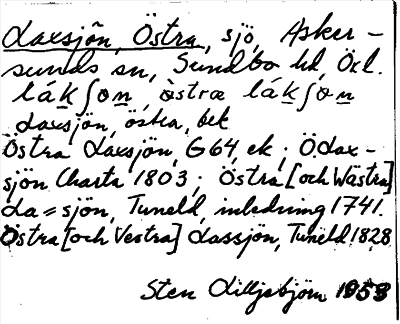 Laxsjön, Östra, sjö, Asker-
sunds sn, Sundbo hd, Öxl.
láḵʃo̱ṉ, östræ láḵʃo̱ṉ
Laxsjön, östra, bek
Östra Laxsjön, G64, ek; Ö.Lax-
sjön Charta 1803; Östra [och Wästra]
La=sjön, Tuneld, inledning 1741.
Östra [och Vestra] Lassjön, Tuneld 1828
Sten Lilljebjörn 1953